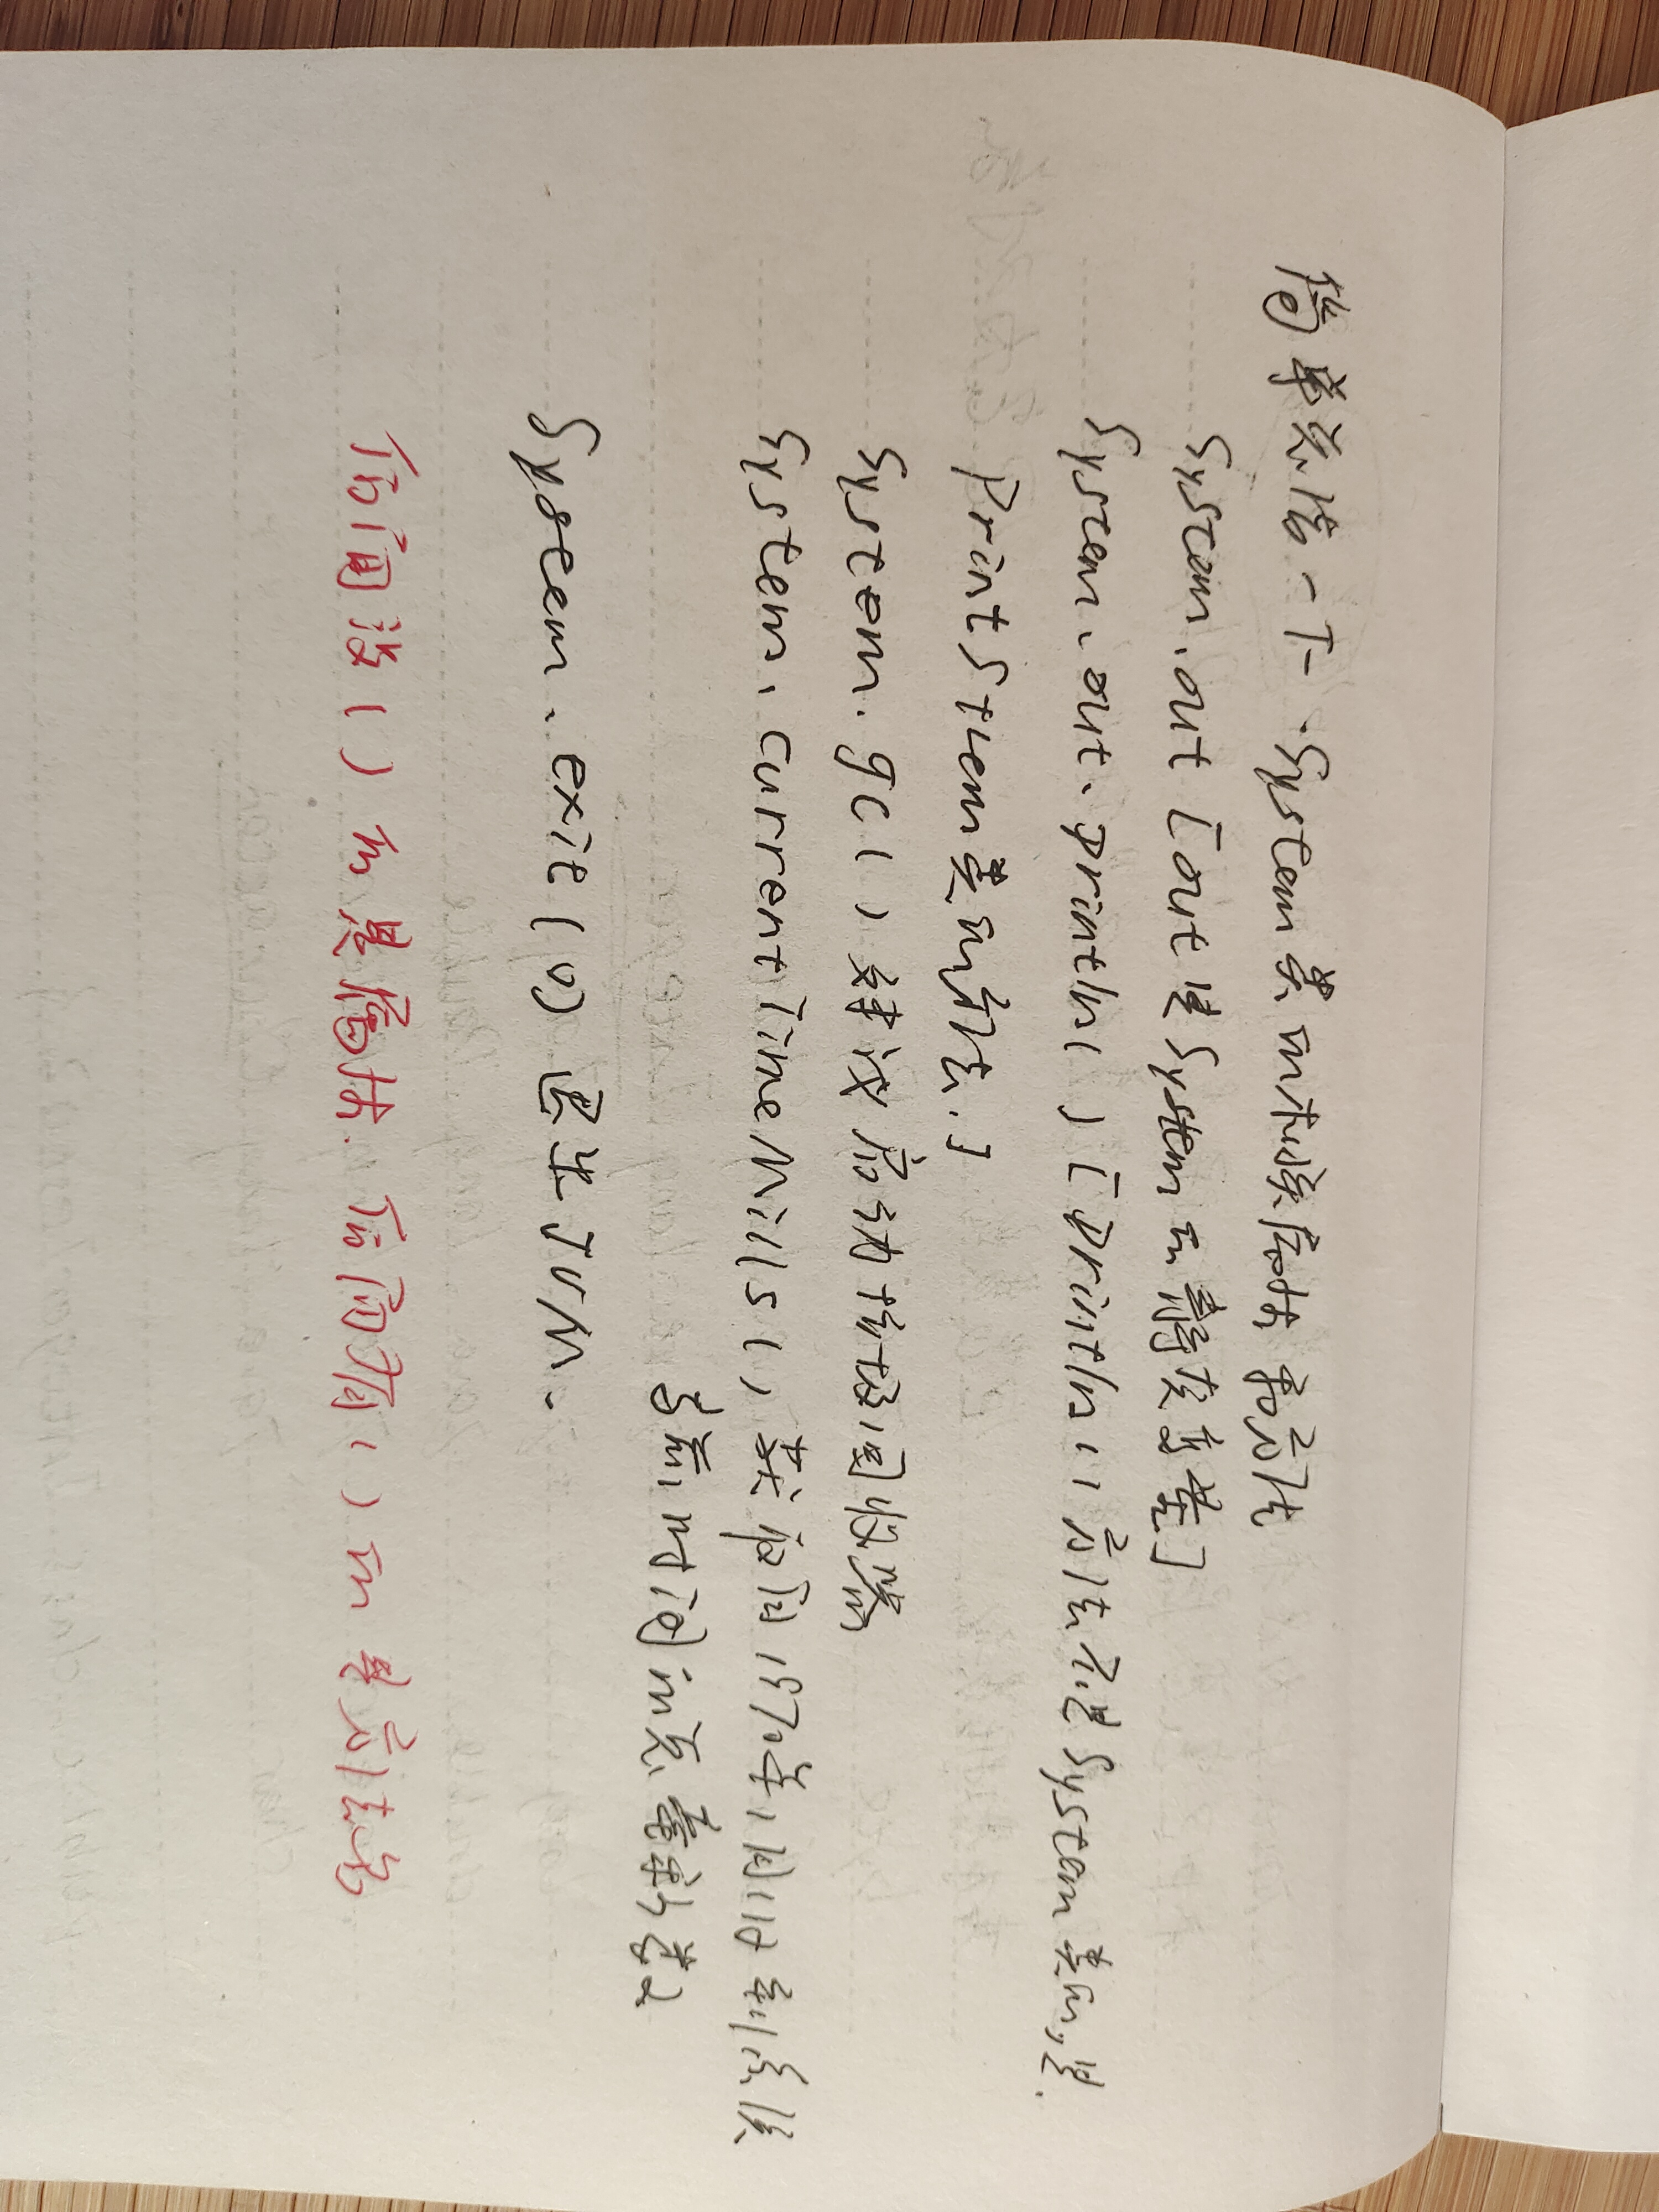 简单总结一下.System类的相关属性和方法
System.out [out是System的静态变量]
System.out.println() [println()方法不是System类的,是
PrintStream类的方法.]
System.gc() 建议启动垃圾回收器
System.currentTimeMills() 获取自1970年1月1日到系统
当前时间的总毫秒数
System.exit(0) 退出JVM.
后面没()的是属性.后面有()的是方法名